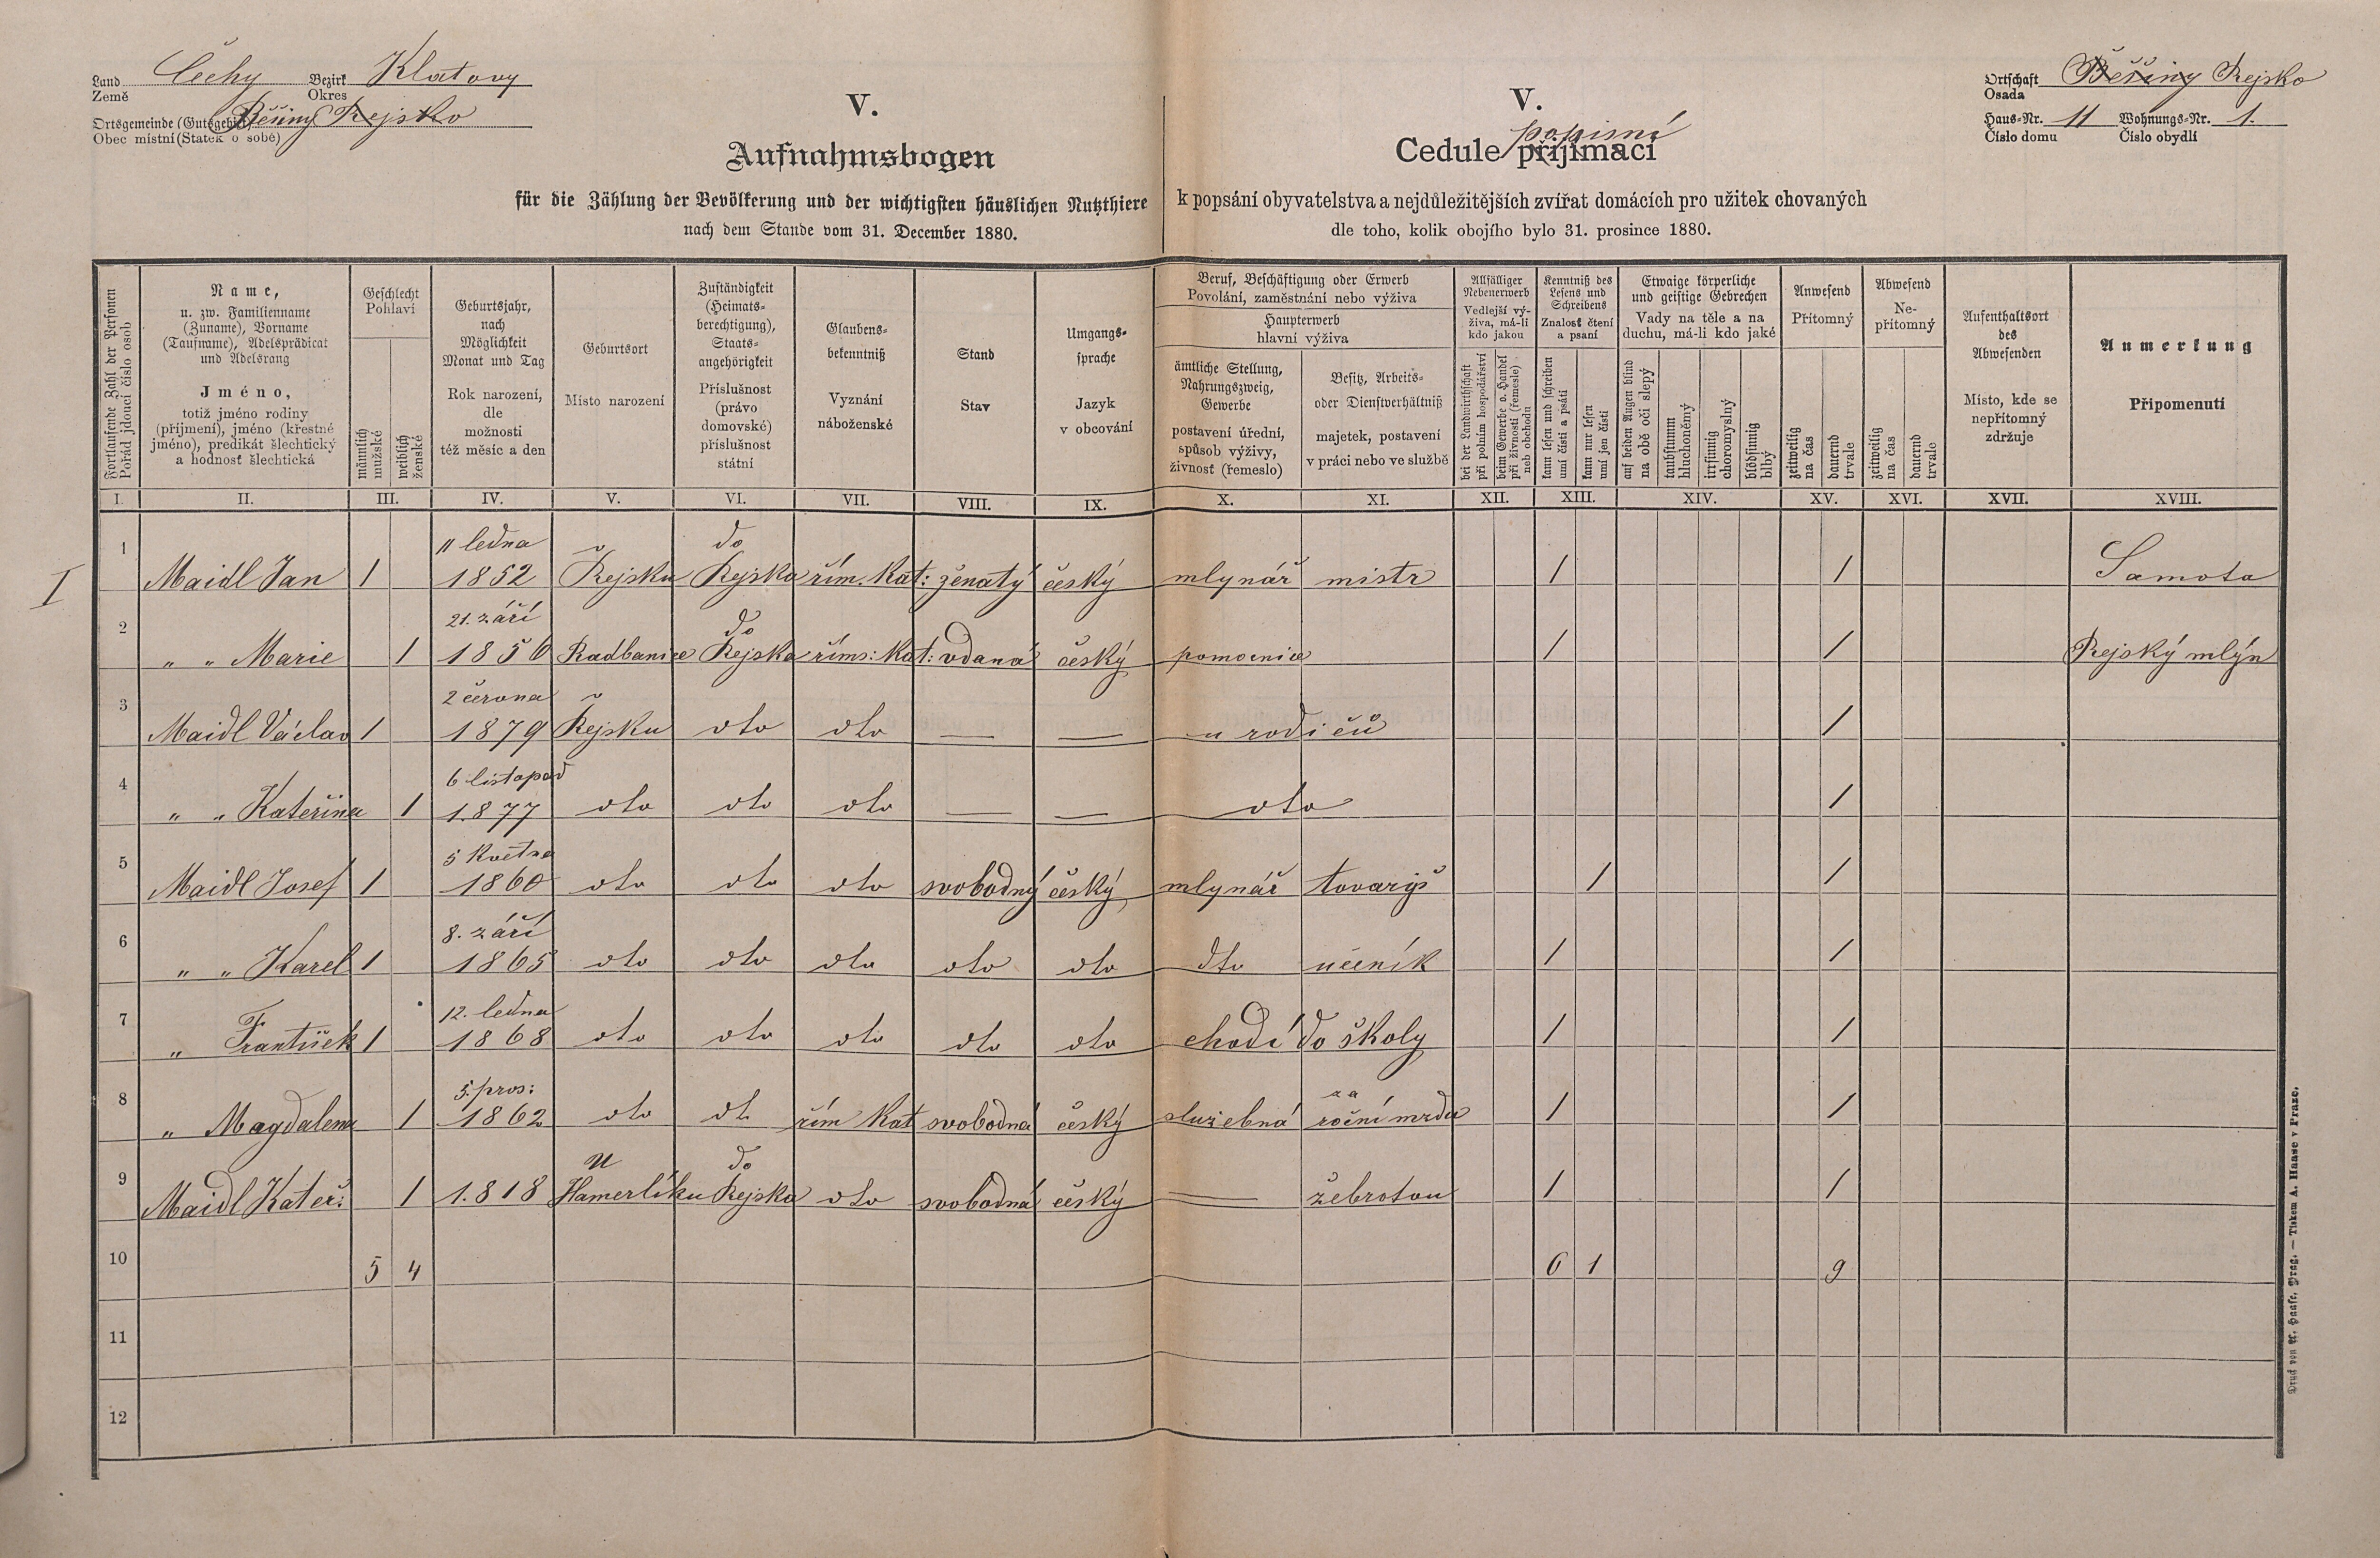 Land Čechy Bezirk Klatovy
Země Okres
Ortsgemeinde (Gutsgebiet) Běšiny Rejsko
Obec místní (Statek o sobě)
V.
Aufnahmsbogen
für die Zählung der Bevölkerung und der wichtigsten häuslichen Nutzthiere
nach dem Stande vom 31. December 1880.
V.
popisní
Cedule přijímací
k popsání obyvatelstva a nejdůležitějších zvířat domácích pro užitek chovaných
dle toho, kolik obojího bylo 31. prosince 1880.
Ortschaft Běšiny Rejsko
Osada
Haus-Nr. 11 Wohnungs-Nr. 1.
Číslo domu Číslo obydlí
Fortlaufende Zahl der Personen
Pořád jdoucí číslo osob
Name,
u. zw. Familienname
(Zuname), Vorname
(Taufname), Adelsprädicat
und Adelsrang
Jméno,
totiž jméno rodiny
(příjmení), jméno (křestné
jméno), predikát šlechtický
a hodnosť šlechtická
Geschlecht
Pohlaví
männlich
mužské
weiblich
ženské
Geburtsjahr,
nach
Möglichkeit
Monat und Tag
Rok narození,
dle
možnosti
též měsíc a den
Geburtsort
Místo narození
Zuständigkeit
(Heimats-
berechtigung),
Staats-
angehörigkeit
Příslušnost
(právo
domovské)
příslušnost
státní
Glaubens-
bekenntniß
Vyznání
náboženské
Stand
Stav
Umgangs-
sprache
Jazyk
v obcování
Beruf, Beschäftigung oder Erwerb
Povolání, zaměstnání nebo výživa
Haupterwerb
hlavní výživa
ämtliche Stellung,
Nahrungszweig,
Gewerbe
postavení úřední,
spůsob výživy,
živnosť (řemeslo)
Besitz, Arbeits-
oder Dienstverhältniß
majetek, postavení
v práci nebo ve službě
Allfälliger
Nebenerwerb
Vedlejší vý-
živa, má-li
kdo jakou
bei der Landwirthschaft
při polním hospodářství
beim Gewerbe o. Handel
při živnosti (řemesle)
neb obchodu
Kenntniß des
Lesens und
Schreibens
Znalosť čtení
a psaní
kann lesen und schreiben
umí čísti a psáti
kann nur lesen
umí jen čísti
Etwaige körperliche
und geistige Gebrechen
Vady na těle a na
duchu, má-li kdo jaké
auf beiden Augen blind
na obě oči slepý
taubstumm
hluchoněmý
irrsinnig
choromyslný
blödsinnig
blbý
Anwesend
Přítomný
zeitweilig
na čas
dauernd
trvale
Abwesend
Ne-
přítomný
zeitweilig
na čas
dauernd
trvale
Aufenthaltsort
des
Abwesenden
Místo, kde se
nepřítomný
zdržuje
Anmerkung
Připomenutí
I. II. III. IV. V. VI. VII. VIII. IX. X. XI. XII. XIII. XIV. XV. XVI. XVII. XVIII.
I
1 11 ledna v do
Maidl Jan 1 1852 Rejsku Rejska řím. kat: ženatý český mlynář mistr 1 1 Samota
2 21. září do
" " Marie 1 1856 Radbanice Rejska říms: kat: vdaná český pomocnice 1 1 Rejský mlýn
3 2 června v
Maidl Václav 1 1879 Rejsku dto dto — — u rodičů 1
4 6 listopad
" " Kateřina 1 1877 dto dto dto — — dto 1
5 5 Května
Maidl Josef 1 1860 dto dto dto svobodný český mlynář tovaryš 1 1
6 8. září
" " Karel 1 1865 dto dto dto dto dto dto učeník 1 1
7 12. ledna
" František 1 1868 dto dto dto dto dto chodí do školy 1 1
8 5. pros: za
" Magdalena 1 1862 dto dt. řím kat svobodná český služebná roční mzdu 1 1
9 u do
Maidl Kateř: 1 1.818 Hamerlíku Rejska dto svobodná český — žebrotou 1 1
10 5 4 6 1 9
11
12
Druck von A. Haase, Prag. — Tiskem A. Haase v Praze.